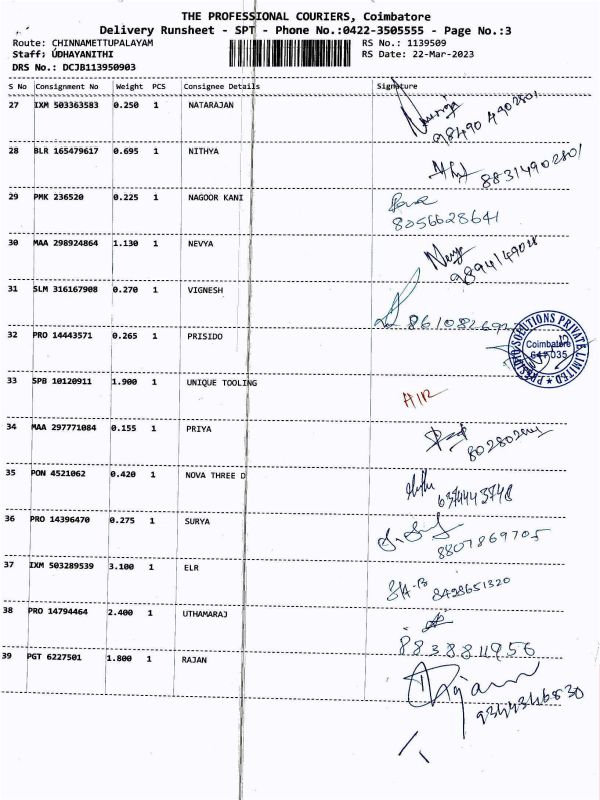 THE PROFESSIONAL COURIERS, Coimbatore
Delivery Runsheet - SPT - Phone No.:0422-3505555 - Page No.:3
Route: CHINNAMETTUPALAYAM RS No.: 1139509
Staff: UDHAYANITHI RS Date: 22-Mar-2023
DRS No.: DCJB113950903
S No Consignment No Weight PCS Consignee Details Signature
27 IXM 503363583 0.250 1 NATARAJAN
28 BLR 165479617 0.695 1 NITHYA
88314902801
29 PMK 236520 0.225 1 NAGOOR KANI
8056628641
30 MAA 298924864 1.130 1 NEVYA
31 SLM 316167908 0.270 1 VIGNESH
32 PRO 14443571 0.265 1 PRISIDO
PRESIDIO SOLUTIONS PRIVATE LIMITED
Coimbatore
641 035
33 SPB 10120911 1.900 1 UNIQUE TOOLING AIR
34 MAA 297771084 0.155 1 PRIYA
35 PON 4521062 0.420 1 NOVA THREE D
6374443748
36 PRO 14396470 0.275 1 SURYA
8807869705
37 IXM 503289539 3.100 1 ELR
8428651320
38 PRO 14794464 2.400 1 UTHAMARAJ
8838811956
39 PGT 6227501 1.800 1 RAJAN
9344346830